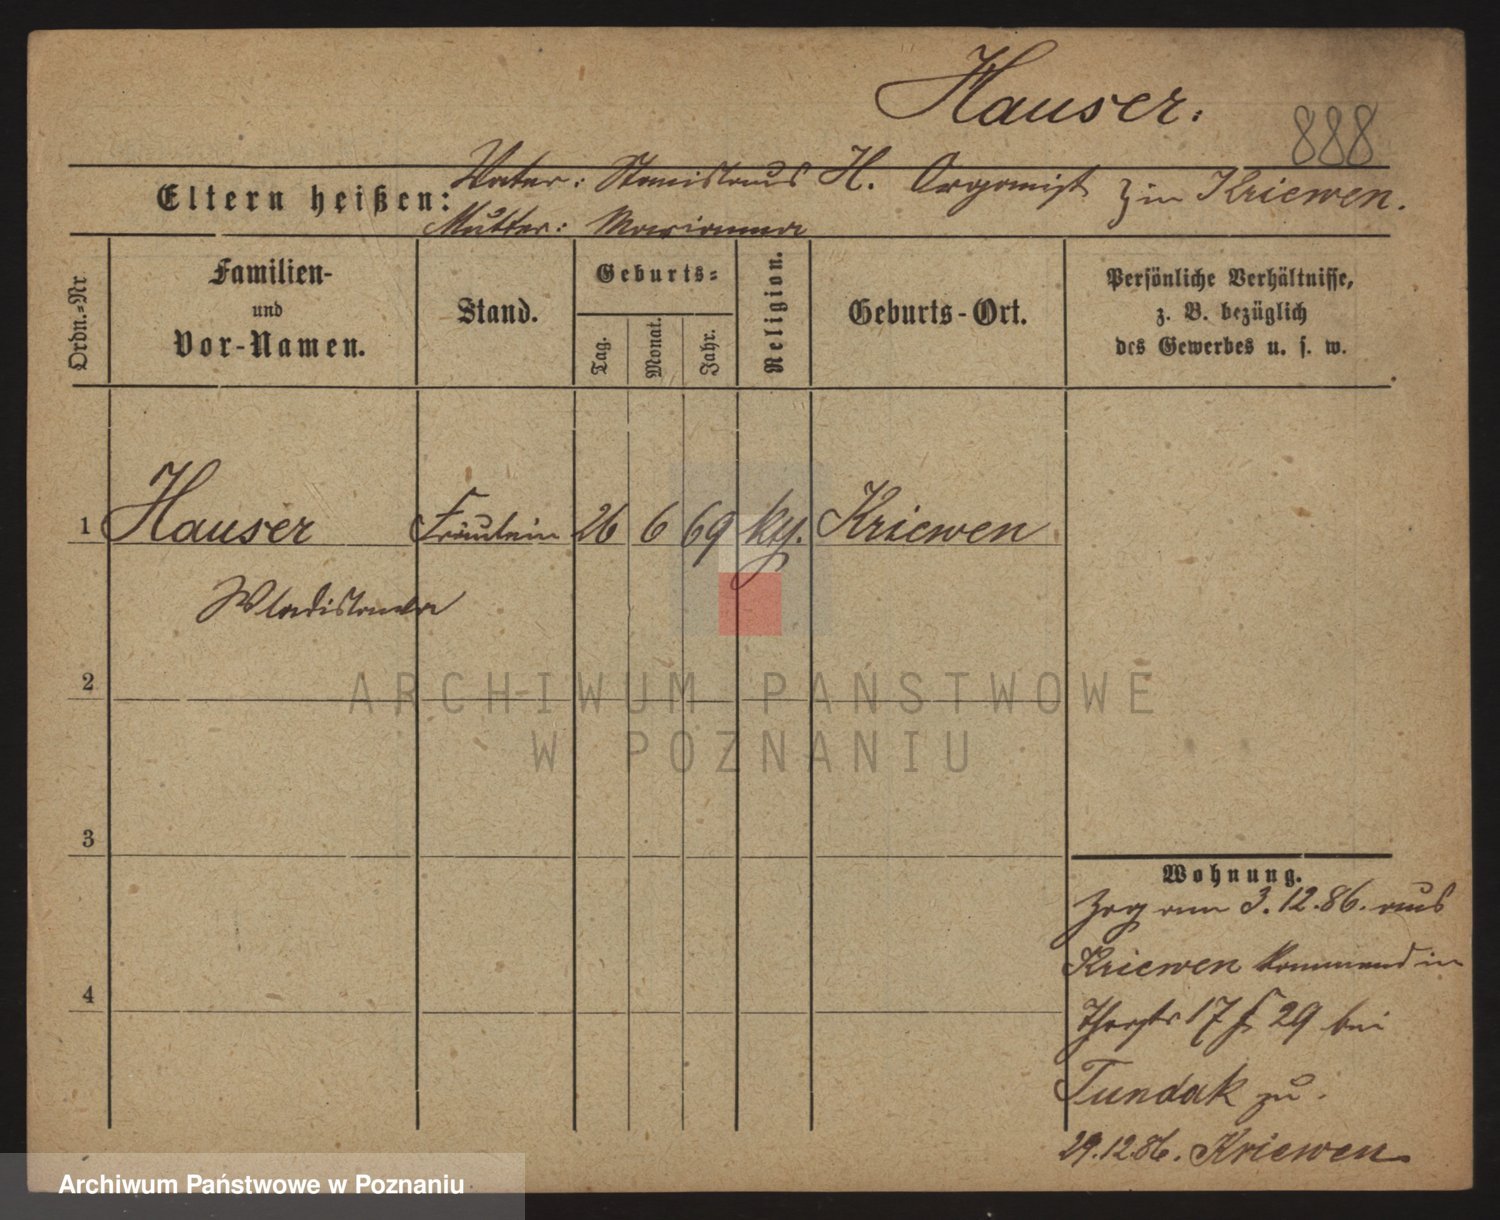 Hauser.
888
Eltern heißen:
Vater: Stanislaus H. Organist
Mutter: Marianna
} in Kriewen.
Ordn.-Nr
Familien-
und
Vor-Namen.
Stand.
Geburts-
Tag.
Monat.
Jahr.
Religion.
Geburts-Ort.
Persönliche Verhältnisse,
z. B. bezüglich
des Gewerbes u. s. w.
1 Hauser Fräulein 26 6 69 Kriewen
Wladislawa
2
3
4
Wohnung.
Zog am 3.12.86. aus
Kriewen kommend in
17 29 bei
Tundak zu.
29.12.86. Kriewen
ARCHIWUM PAŃSTWOWE
W POZNANIU
Archiwum Państwowe w Poznaniu